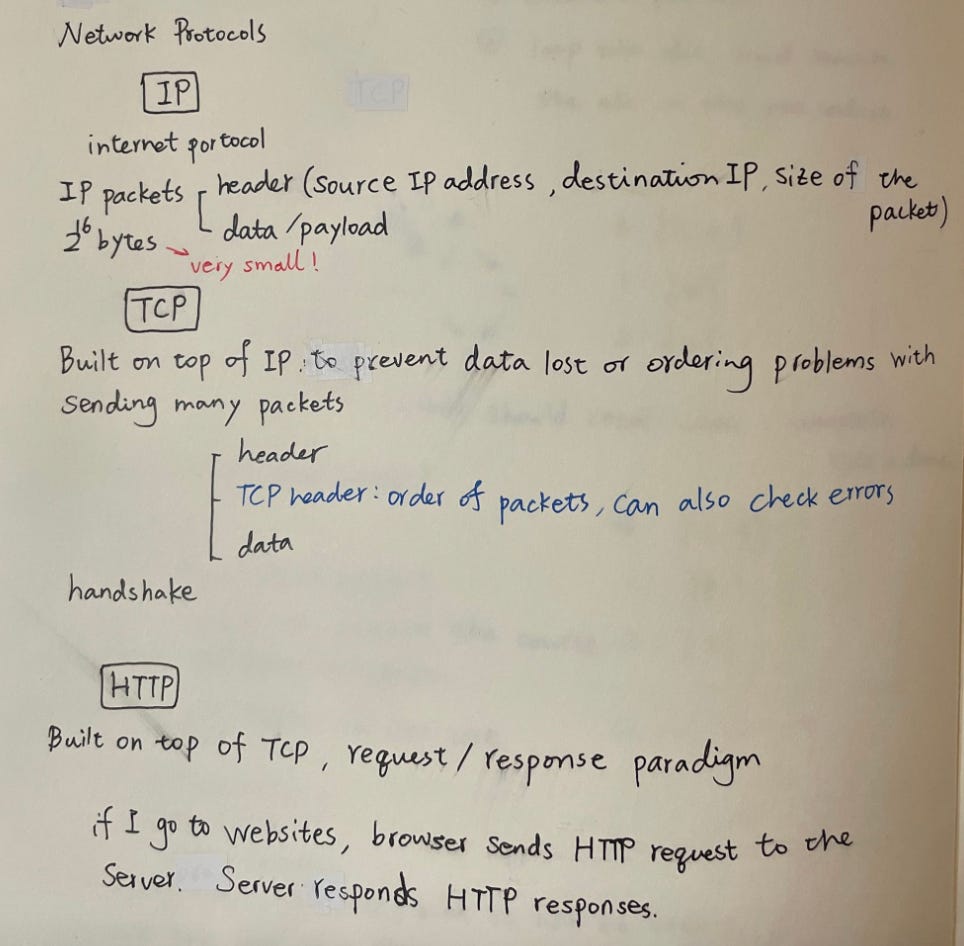 Network Protocols
IP
TCP
internet portocol
IP packets header (source IP address, destination IP, size of the
packet)
data/payload
2^16 bytes → very small!
TCP
Built on top of IP. to prevent data lost or ordering problems with
sending many packets
header
TCP header: order of packets, can also check errors
data
handshake
HTTP
Built on top of TCP, request/response paradigm
if I go to websites, browser sends HTTP request to the
server. Server responds HTTP responses.